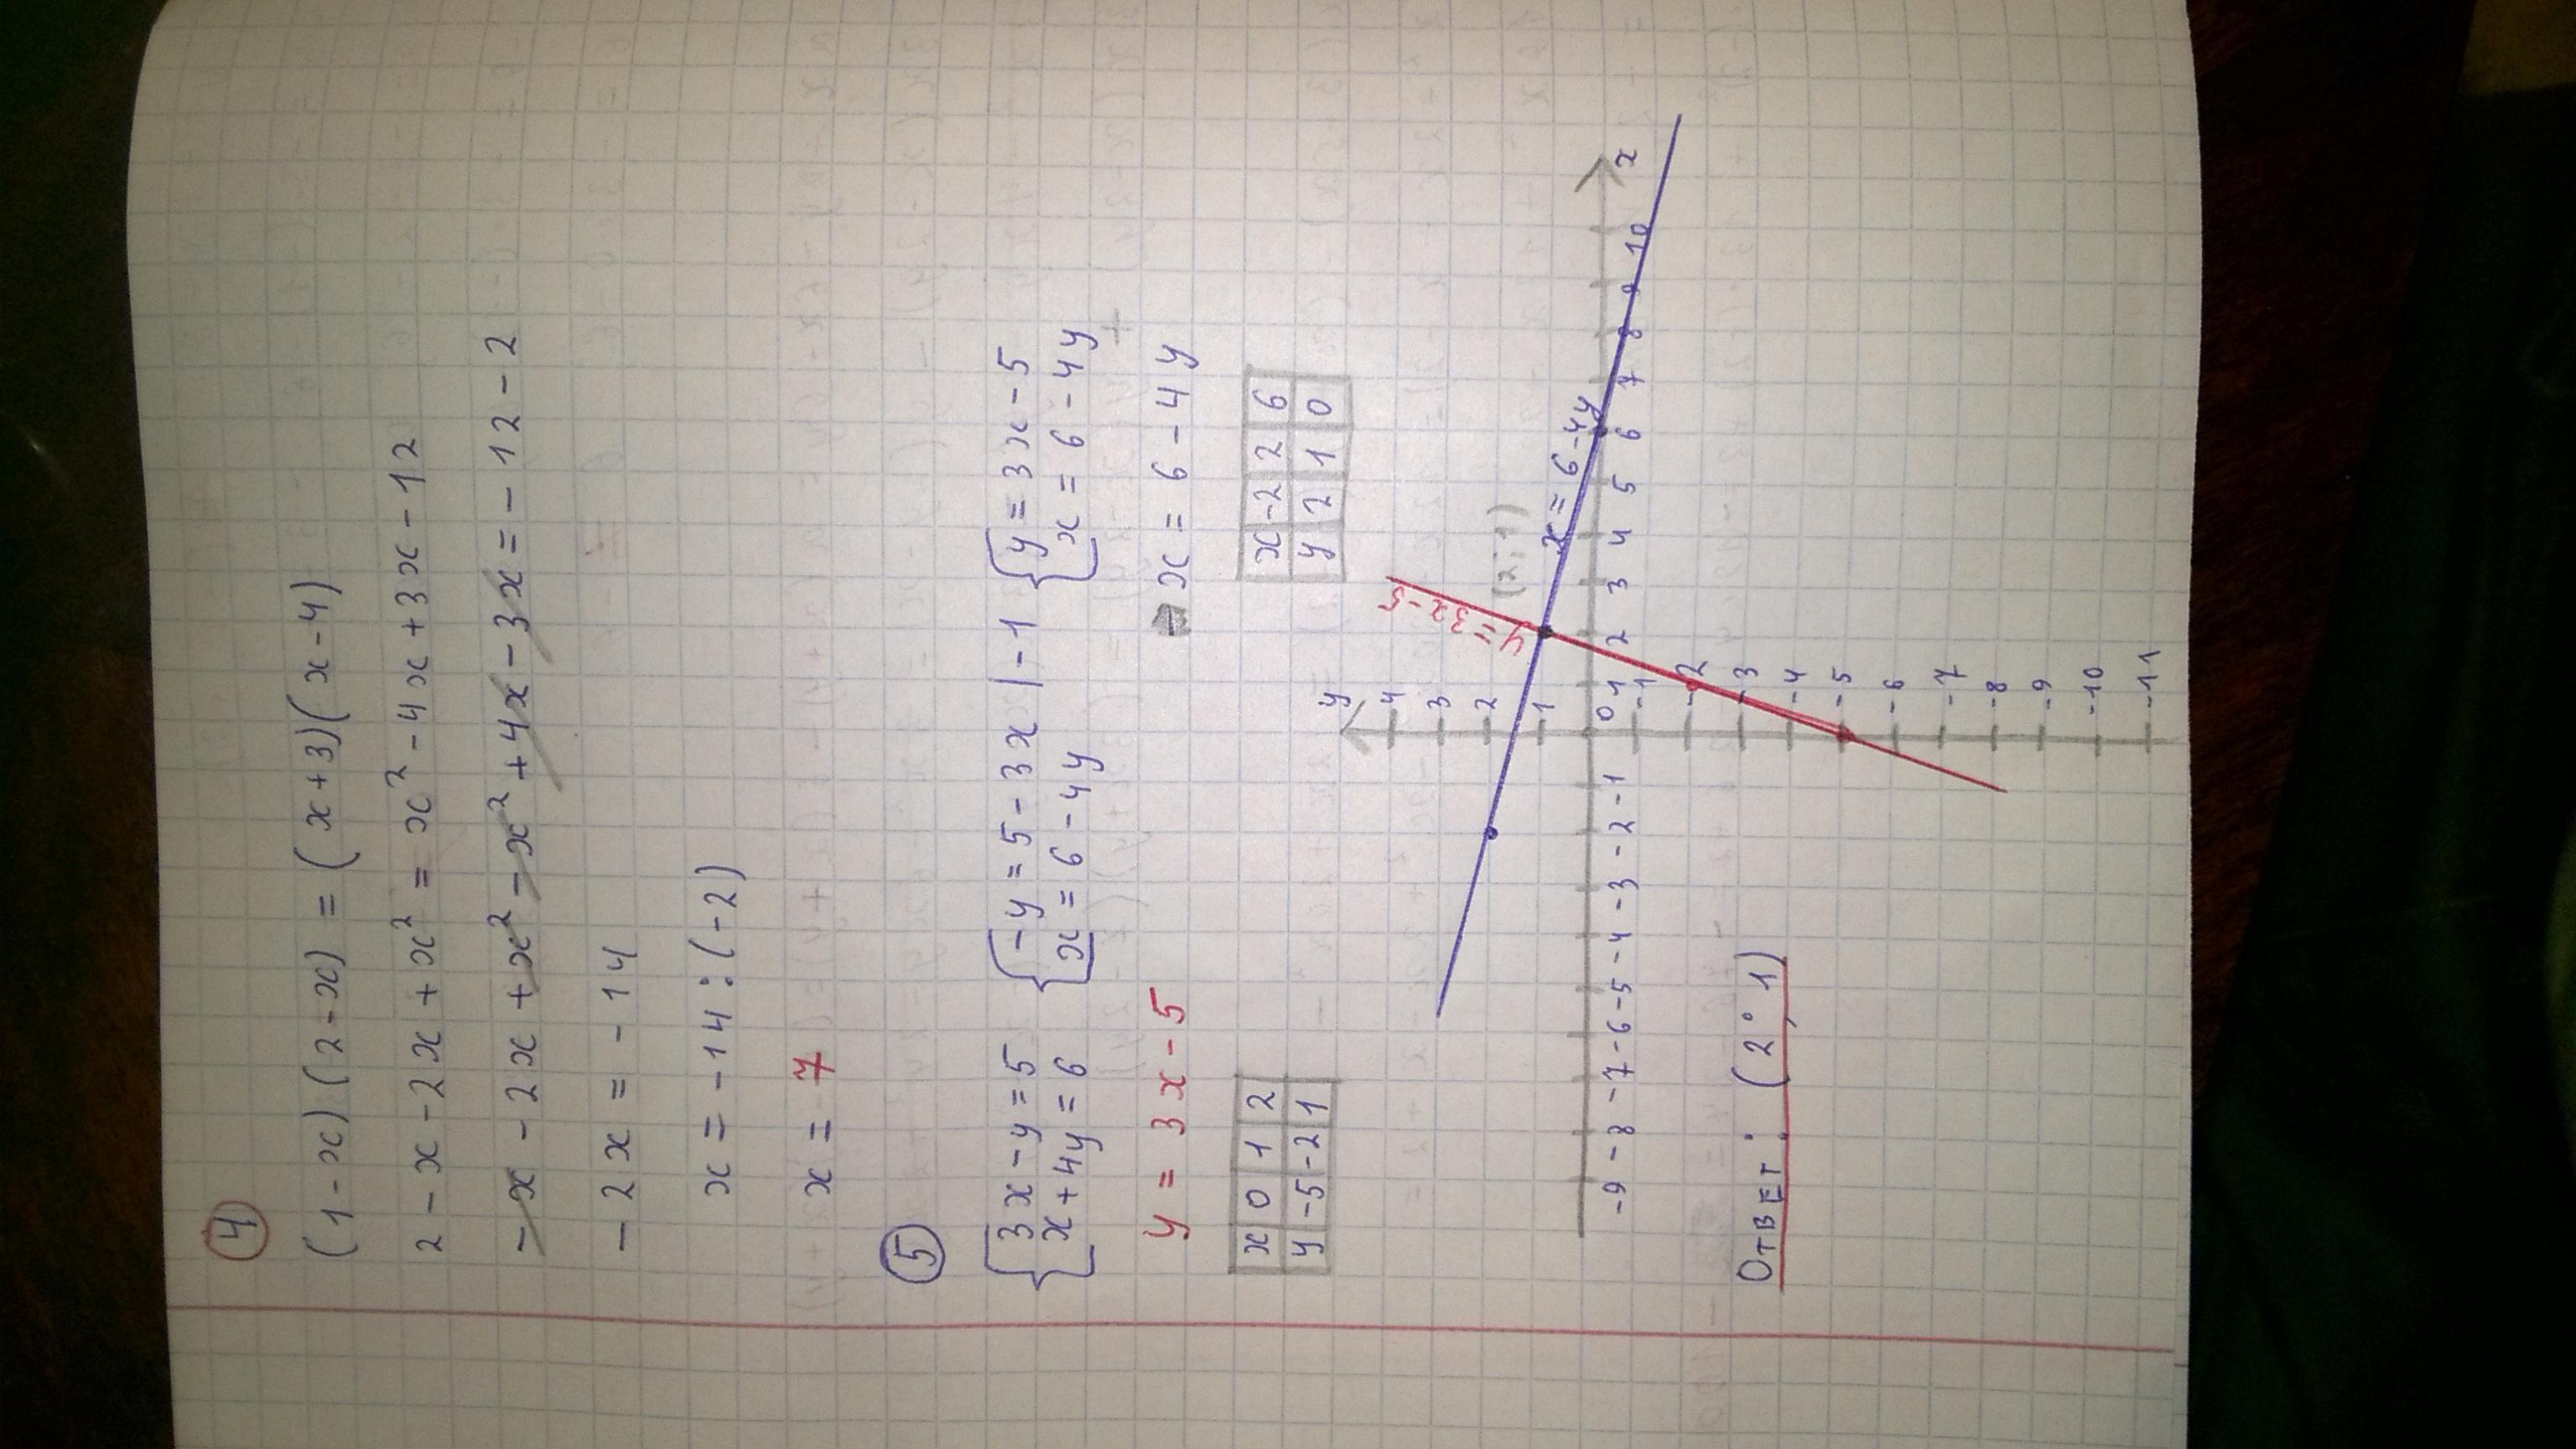 4
(1-x)(2-x) = (x+3)(x-4)
2-x-2x+x² = x²-4x+3x-12
-x-2x+x²-x²+4x-3x=-12-2
-2x = -14
x = -14:(-2)
x = 7
5
{3x-y=5 {-y=5-3x |-1 {y=3x-5
{x+4y=6 {x=6-4y {x=6-4y
y = 3x-5 x = 6-4y
x 0 1 2 x -2 2 6
y -5 -2 1 y 2 1 0
y
4
3
2
1
y=3x-5
(2;1)
x=6-4y
-9 -8 -7 -6 -5 -4 -3 -2 -1 0 1 2 3 4 5 6 7 8 9 10 x
-1
-2
-3
-4
-5
-6
-7
-8
-9
-10
-11
Ответ: (2; 1)